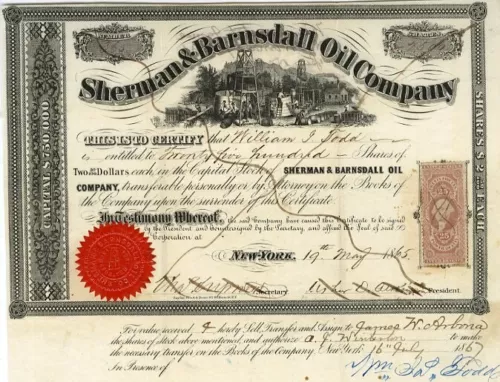 NUMBER
SHARES
Sherman & Barnsdall Oil Company
CAPITAL $750,000
SHARES $2 EACH
THIS IS TO CERTIFY that William I. Todd
is entitled to Twenty five hundred Shares of
Two Dollars each in the Capital Stock SHERMAN & BARNSDALL OIL
COMPANY, transferable personally or by Attorney on the Books of
the Company upon the surrender of this Certificate
In Testimony Whereof, the said Company have caused this Certificate to be signed
by the President and Countersigned by the Secretary, and affixed the Seal of said
Corporation at
NEW-YORK. 19th May 1865.
Secretary
President.
25
For value received I hereby Sell Transfer and Assign to James W.
the shares of Stock above mentioned, and authorize to make
the necessary transfer on the Books of the Company. New York 16 July 1865
In Presence of Todd